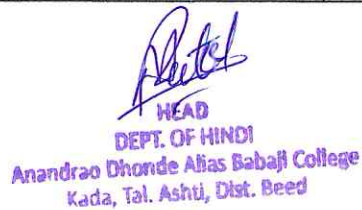 HEAD
DEPT. OF HINDI
Anandrao Dhonde Alias Babaji College
Kada, Tal. Ashti, Dist. Beed